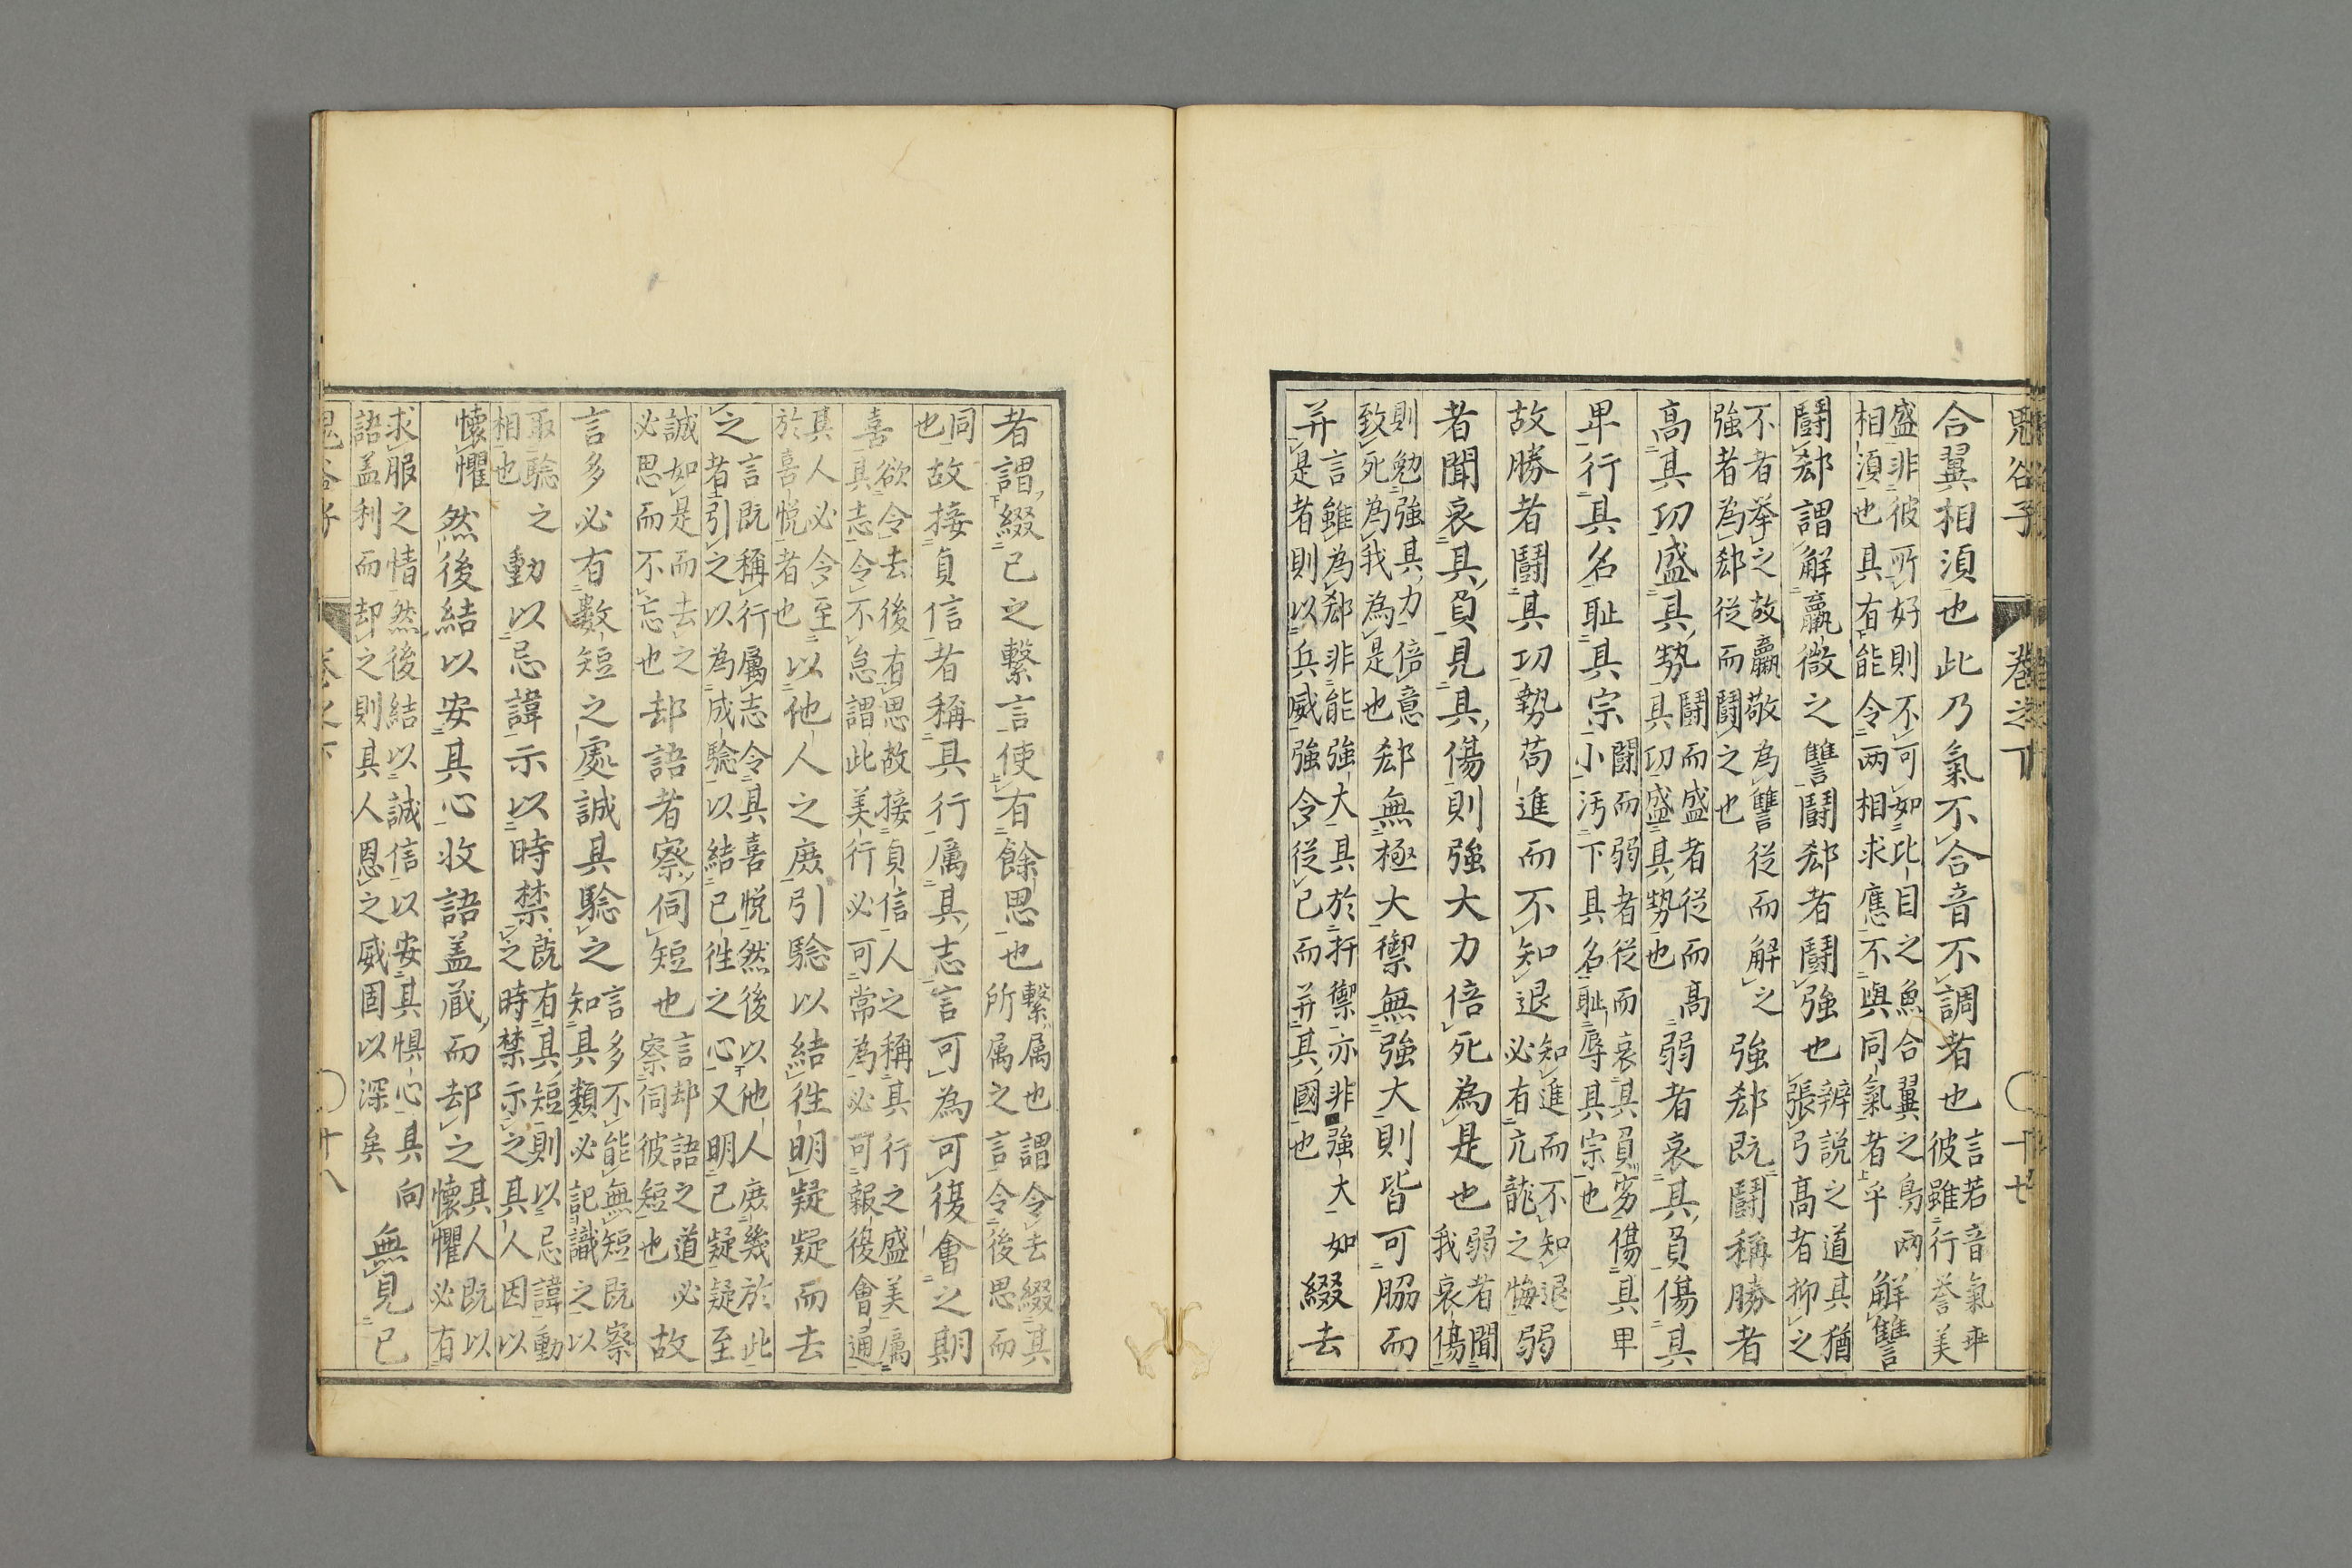 鬼谷子 卷之下 十七
合翼相湏也此乃氣不合音不調者也言若音氣乖彼雖行譽美
盛非彼所好則不可如比目之魚合翼之鳥兩相湏也其有能令两相求應不與同氣者乎解讐
鬪郄謂解羸微之讐鬪郄者鬪強也辨説之道其猶張弓髙者抑之
不者挙之故羸敬為讐從而解之強者為郄從而鬪之也強郄既鬪稱勝者
髙其功盛其勢鬪而盛者從而髙其功盛其勢也弱者哀其負傷其
卑行其名耻其宗鬪而弱者從而哀其負劣傷其卑小汚下其名耻辱其宗也
故勝者鬪其功勢苟進而不知退知進而不知退必有亢龍之悔弱
者聞哀其負見其傷則強大力倍死為是也弱者聞我哀傷
則勉強其力倍意致死為我為是也郄無極大禦無強大則皆可脇而
并言雖為郄非能強大其於扞禦亦非強大如是者則以兵威強令從己而并其國也綴去
者謂綴己之繫言使有餘思也繫属也謂令去綴其所属之言令後思而
同也故接貟信者稱其行厲其志言可為可復會之期
喜欲令去後有思故接貟信人之稱其行之盛美厲其志令不怠謂此美行必可常為必可報後會通
其人必令至於喜悦者也以他人之庶引驗以結往明疑疑而去
之言既稱行属志令其喜悦然後以他人庶幾於此者引之以為成驗以結己往之心又明己疑疑至
誠如是而去之必思而不忘也却語者察伺短也言却語之道必察伺彼短也故
言多必有數短之處誠其驗之言多不能無短既察知其類必記識之以
取驗之相也動以忌諱示以時禁既有其短則以忌諱動之時禁示之其人因以
懷懼然後結以安其心收語盖藏而却之其人既以懷懼必有
求服之情然後結以誠信以安其惧心其向語盖利而却之則其人恩之威固以深矣無見己
鬼谷子 卷之下 十八